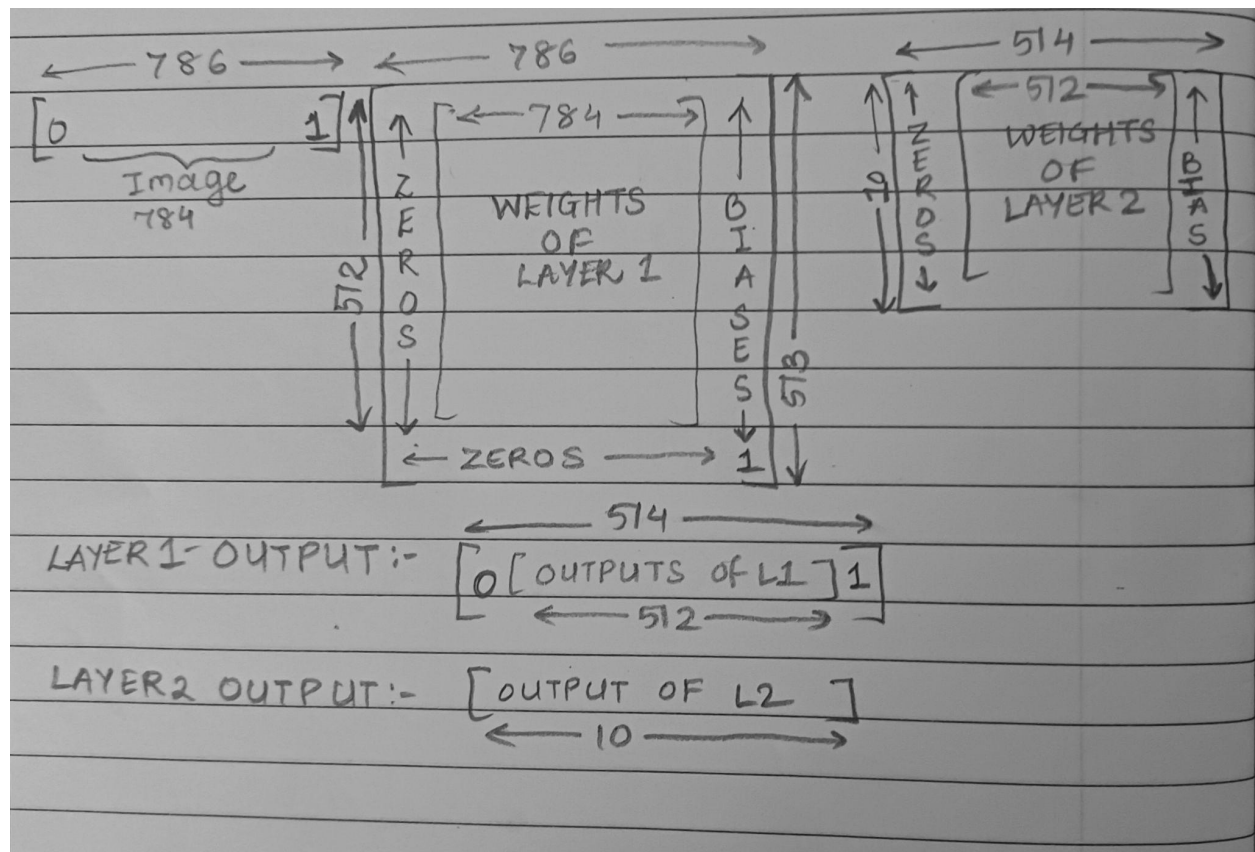 786
786
514
[0 1]
Image
784
512
ZEROS
784
WEIGHTS
OF
LAYER 1
BIASES
ZEROS 1
513
10
ZEROS
512
WEIGHTS
OF
LAYER 2
BIAS
514
LAYER 1- OUTPUT:- [0 [OUTPUTS Of L1] 1]
512
LAYER2 OUTPUT:- [OUTPUT OF L2]
10